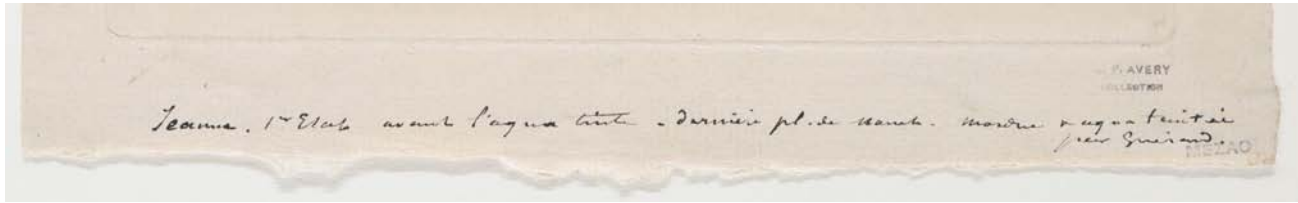 S. P. AVERY
COLLECTION
Jeanne. 1er Etat avant l'aqua tinte - dernière pl. de Manet. mordue & aqua teintée
par Guérard.
MEZAO